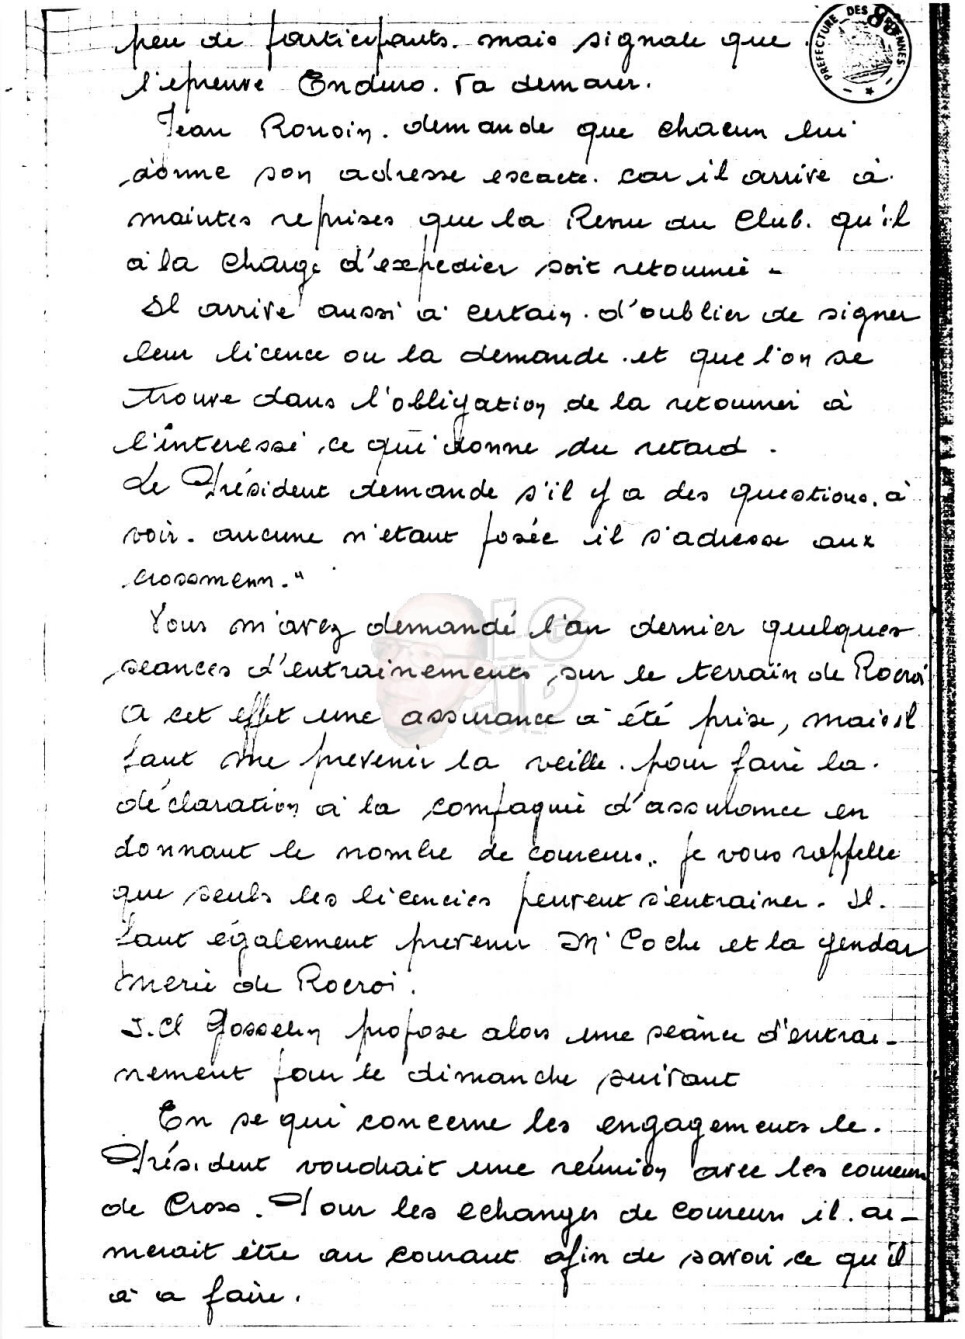 peu de participants. mais signale que
l'epreuve Enduro. va demarer.
Jean Rousoin. demande que chacun lui
donne son adresse escacte. car il arrive à
maintes reprises que la Revue du Club. qu'il
à la charge d'expedier soit retournée -
Il arrive aussi a certain. d'oublier de signer
leur licence ou la demande. et que l'on se
trouve dans l'obligation de la retourner à
l'interessé, ce qui donne du retard.
Le Président demande s'il y a des questions. à
voir. aucune n'etant posée il s'adresse aux
crossmenn."
Vous m'avez demandé l'an dernier quelques
seances d'entrainements, sur le terrain de Rocroi
a cet effet une assurance a été prise, mais il
faut me prevenir la veille. pour faire la.
déclaration à la compagnie d'assurance en
donnant le nombre de coureurs.. je vous rappelle
que seuls les licencies peuvent s'entrainer. Il.
faut également prevenir Mr Coche et la gendar
merie de Rocroi.
J.Cl Gosselin propose alors une seance d'entrai-
nement pour le dimanche suivant
En se qui concerne les engagements le.
Président voudrait une reunion avec les coureurs
de Cross. Pour les echanges de coureurs il. ai-
merait être au courant afin de savoir ce qu'il
a a faire.
PREFECTURE DES ARDENNES
LG
JP